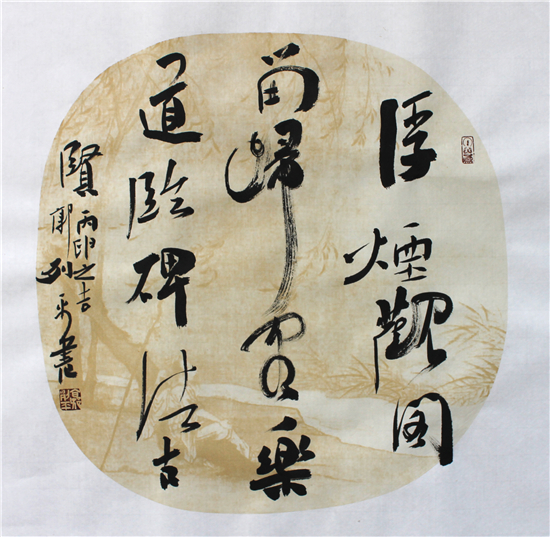 浮煙觀閣
留歸安樂
道臨碑法古
賢
丙申之吉
郭列平書